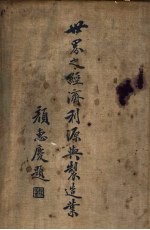 世界之經濟利源與製造業
顏惠慶題